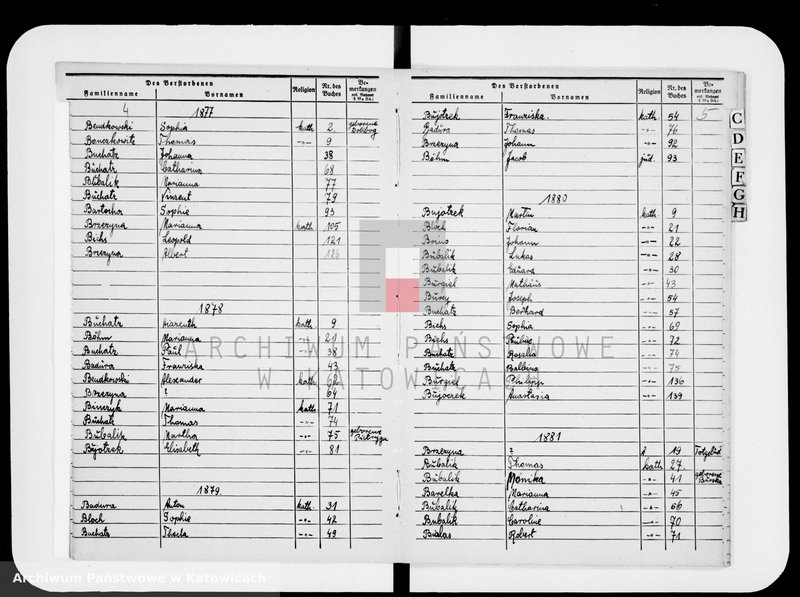 Des Verstorbenen
Familienname Vornamen Religion Nr. des Buches Bemerkungen
4 1877
Bendkowski Sophia kath. 2 geborene
Bonczkowitz Thomas -"- 9
Buchatz Johanna 38
Buchatz Catharina 68
Bubalik Marianna 77
Buchatz Vincent 79
Bartocha Sophie 93
Brzezyna Marianna kath 105
Bichs Leopold 121
Brzezyna Albert 126
1878
Buchatz kath 9
Böhm Marianna -"- 21
Buchatz Paul -"- 38
Badura Franziska 43
Bendkowski Alexander kath 62
Brzezyna ? 64
Marianna kath. 71
Buchatz Thomas -"- 74
Bubalik Martha -"- 75 geborene
Bujotzek Elisabeth -"- 81
1879.
Badura Anton kath. 31
Bloch Sophie -"- 42
Buchatz Thecla -"- 49
Des Verstorbenen
Familienname Vornamen Religion Nr. des Buches Bemerkungen
Bujotzek Franziska. kath. 54 5
Badura Thomas -"- 76
Brzezyna Johann -"- 92
Böhm Jacob jüd. 93
1880
Bujotzek Martin kath. 9
Bloch Florian -"- 21
Johann -"- 22
Bubalik Lukas -"- 28
Bubalik Eduard -"- 30
Burgiel Mathäus -"- 43
Joseph -"- 54
Buchatz -"- 57
Bichs Sophia -"- 69
Bichs -"- 72
Buchatz Rosalia -"- 74
Buchatz Balbina -"- 75
Burgiel Philipp -"- 136
Anastasia -"- 139
1881
Brzezyna ? 19
Bubalik Thomas kath 27
Bubalik Monika -"- 41 geborene
Barelka Marianna -"- 45
Bubalik Catharina -"- 66
Bubalik Caroline -"- 70
Bialas Robert -"- 71
C
D
E
F
G
H
ARCHIWUM PAŃSTWOWE
W KATOWICACH
Archiwum Państwowe w Katowicach